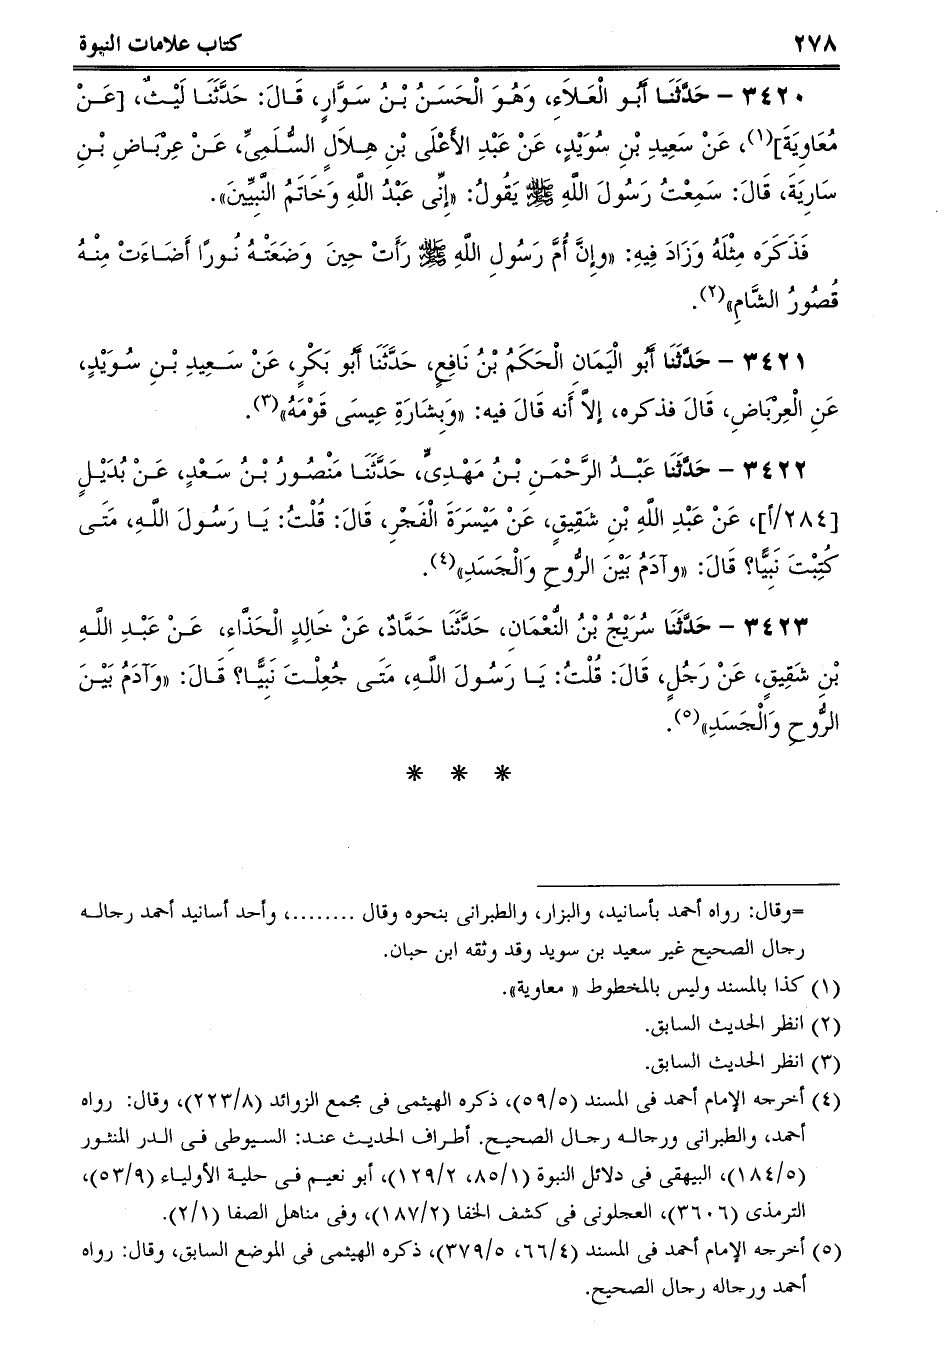 ٢٧٨ كتاب علامات النبوة
٣٤٢٠ - حَدَّثَنَا أَبُو الْعَلاَءِ، وَهُوَ الْحَسَنُ بْنُ سَوَّارٍ، قَالَ: حَدَّثَنَا لَيْثٌ، [عَنْ
مُعَاوِيَةَ](١)، عَنْ سَعِيدِ بْنِ سُوَيْدٍ، عَنْ عَبْدِ الأَعْلَى بْنِ هِلاَلٍ السُّلَمِىِّ، عَنْ عِرْبَاضِ بْنِ
سَارِيَةَ، قَالَ: سَمِعْتُ رَسُولَ اللَّهِ ﷺ يَقُولُ: «إِنِّى عَبْدُ اللَّهِ وَخَاتَمُ النَّبِيِّينَ».
فَذَكَرَه مِثْلَهُ وَزَادَ فِيهِ: «وإِنَّ أُمَّ رَسُولِ اللَّهِ ﷺ رَأَتْ حِينَ وَضَعَتْهُ نُورًا أَضَاءَتْ مِنْهُ
قُصُورُ الشَّامِ»(٢).
٣٤٢١ - حَدَّثَنَا أَبُو الْيَمَانِ الْحَكَمُ بْنُ نَافِعٍ، حَدَّثَنَا أَبُو بَكْرٍ، عَنْ سَعِيدِ بْنِ سُوَيْدٍ،
عَنِ الْعِرْبَاضِ، قَالَ فذكره، إلاَّ أنه قَالَ فيه: «وَبَشَارَةِ عِيسَى قَوْمَهُ»(٣).
٣٤٢٢ - حَدَّثَنَا عَبْدُ الرَّحْمَنِ بْنُ مَهْدِىٍّ، حَدَّثَنَا مَنْصُورُ بْنُ سَعْدٍ، عَنْ بُدَيْلٍ
[٢٨٤/أ]، عَنْ عَبْدِ اللَّهِ بْنِ شَقِيقٍ، عَنْ مَيْسَرَةَ الْفَجْرِ، قَالَ: قُلْتُ: يَا رَسُولَ اللَّهِ، مَتَى
كُتِبْتَ نَبِيًّا؟ قَالَ: «وآدَمُ بَيْنَ الرُّوحِ وَالْجَسَدِ»(٤).
٣٤٢٣ - حَدَّثَنَا سُرَيْجُ بْنُ النُّعْمَانِ، حَدَّثَنَا حَمَّادٌ، عَنْ خَالِدٍ الْحَذَّاءِ، عَنْ عَبْدِ اللَّهِ
بْنِ شَقِيقٍ، عَنْ رَجُلٍ، قَالَ: قُلْتُ: يَا رَسُولَ اللَّهِ، مَتَى جُعِلْتَ نَبِيًّا؟ قَالَ: «وَآدَمُ بَيْنَ
الرُّوحِ وَالْجَسَدِ»(٥).
* * *
=وقال: رواه أحمد بأسانيد، والبزار، والطبرانى بنحوه وقال ........، وأحد أسانيد أحمد رجاله
رجال الصحيح غير سعيد بن سويد وقد وثقه ابن حبان.
(١) كذا بالمسند وليس بالمخطوط « معاوية».
(٢) انظر الحديث السابق.
(٣) انظر الحديث السابق.
(٤) أخرجه الإمام أحمد فى المسند (٥٩/٥)، ذكره الهيثمى فى مجمع الزوائد (٢٢٣/٨)، وقال: رواه
أحمد، والطبرانى ورجاله رجال الصحيح. أطراف الحديث عند: السيوطى فى الدر المنثور
(١٨٤/٥)، البيهقى فى دلائل النبوة (٨٥/١، ١٢٩/٢)، أبو نعيم فى حلية الأولياء (٥٣/٩)،
الترمذى (٣٦٠٦)، العجلونى فى كشف الخفا (١٨٧/٢)، وفى مناهل الصفا (٢/١).
(٥) أخرجه الإمام أحمد فى المسند (٦٦/٤، ٣٧٩/٥)، ذكره الهيثمى فى الموضع السابق، وقال: رواه
أحمد ورجاله رجال الصحيح.